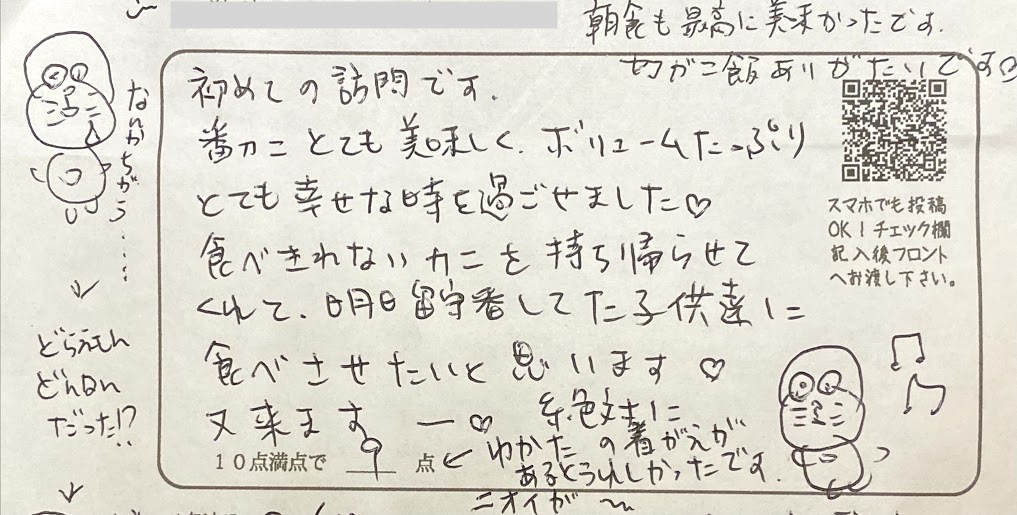 朝食も最高に美味かったです.
カガニ飯ありがたいです
初めての訪問です.
番カニとても美味しく、ボリュームたっぷり
とても幸せな時を過ごせました♡
食べきれないカニを持ち帰らせて
くれて、明日留守番してた子供達に
食べさせたいと思います ♡
又来ます ー♡ 絶対に
10点満点で 9 点 ← ゆかたの着がえが
あるとうれしかったです.
ニオイが 〜
スマホでも投稿
OK!チェック欄
記入後フロント
へお渡し下さい。
なんかちがう……
↓
どらえもん
どんなん
だった!?
↓